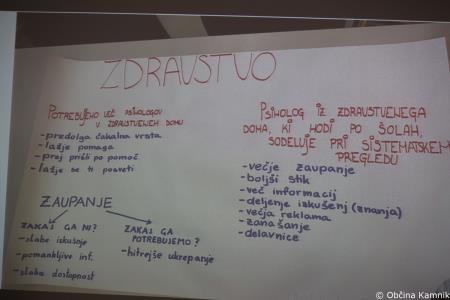 ZDRAVSTVO
POTREBUJEMO VEČ PSIHOLOGOV
V ZDRAVSTVENEM DOMU
- predolga čakalna vrsta
- lažje pomaga
- prej prišli po pomoč
- lažje se ti posveti
ZAUPANJE
ZAKAJ GA NI?
- slabe iskušnje
- pomankljive inf.
- slaba dostopnost
ZAKAJ GA
POTREBUJEMO?
- hitrejše ukrepanje
PSIHOLOG IZ ZDRAVSTVENEGA
DOMA, KI HODI PO ŠOLAH,
SODELUJE PRI SISTEMATSKEM
PREGLEDU
- večje zaupanje
- boljši stik
- več informacij
- deljenje izkušenj (znanja)
- večja reklama
- zanašanje
- delavnice
© Občina Kamnik